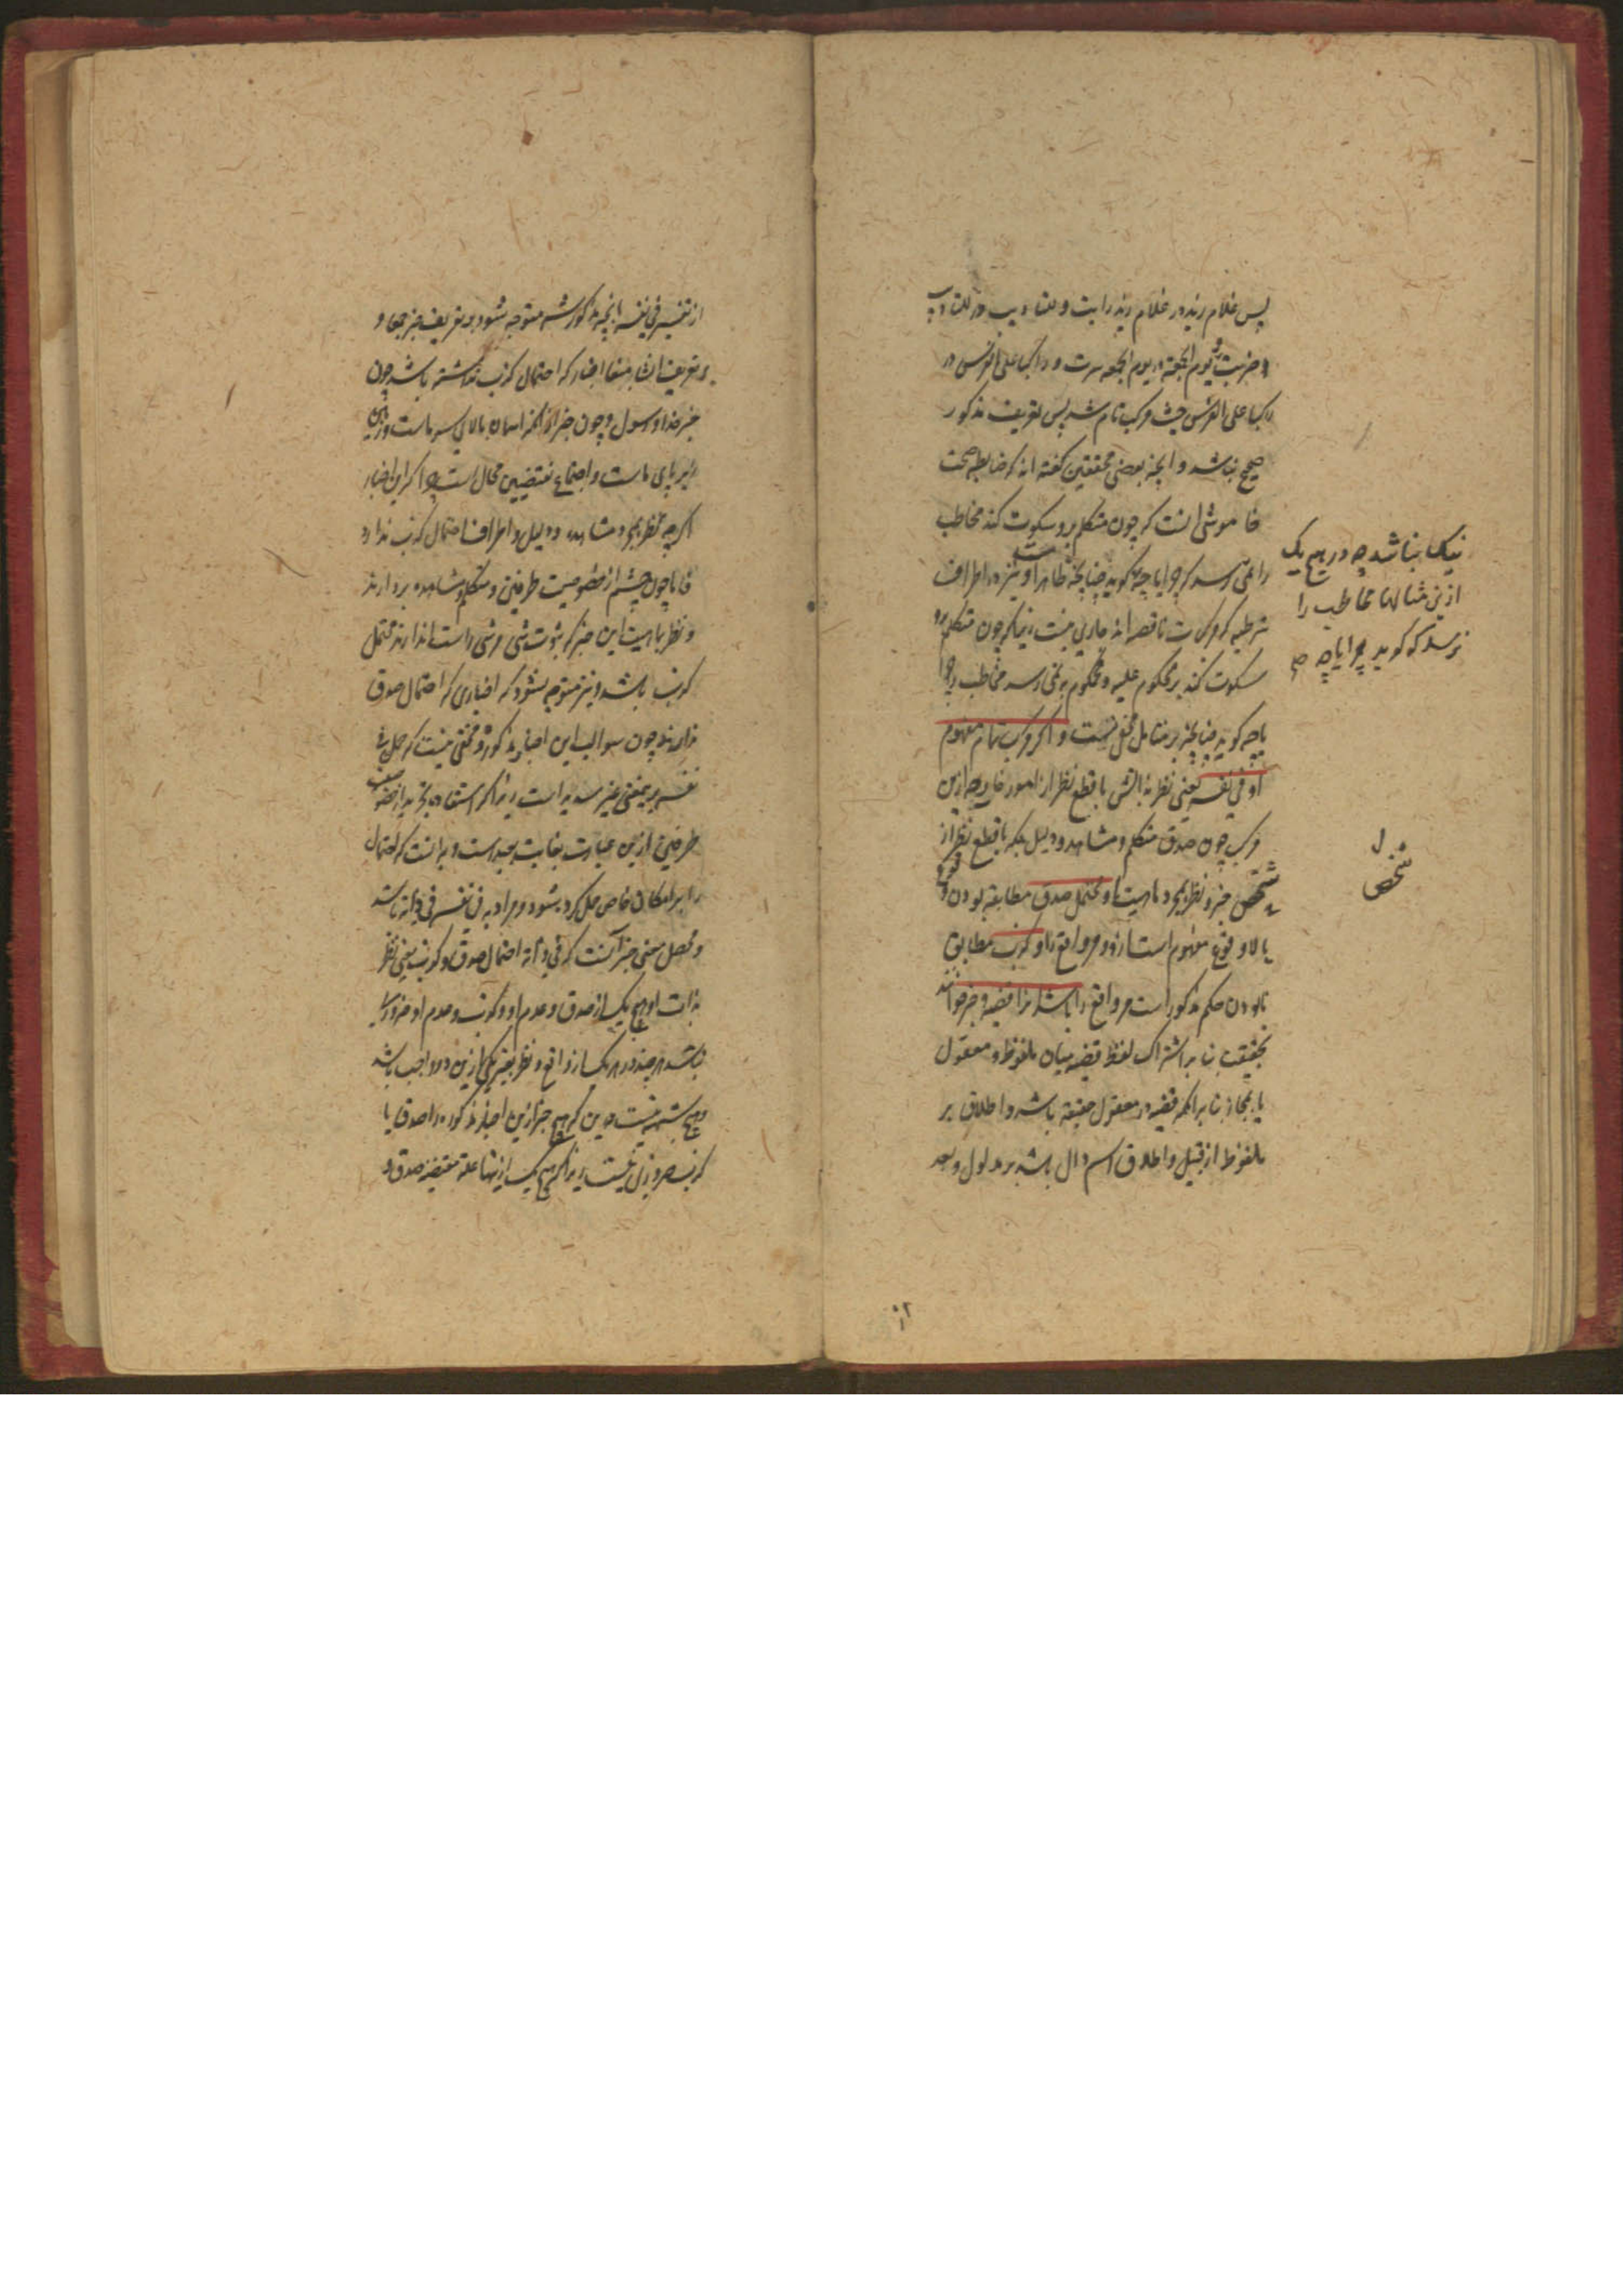 پس غلام زید در غلام زید رایت و للتادیب در للتادیب
و ضربت و یوم الجمعة در یوم الجمعه سرت و راکبا علی الفرس در
راکبا علی الفرس جئت مرکب تام شد پس تعریف مذکور
صحیح نباشد و آنچه بعضی محققین گفته اند که ضابطه صحت
خاموشی آنست که چون متکلم برو سکوت کند مخاطب
را نمی رسد که چرا یا چه گوید چنانچه ظاهر است و نیز در اطراف
شرطیه که مرکبات ناقصه اند جاری نیست زیرا که چون متکلم برو
سکوت کند بر محکوم علیه و محکوم به نمی رسد مخاطب را چرا
یا چه گوید چنانچه بر متامل مخفی نیست و اگر مرکب تام مفهوم
او فی نفسه یعنی نظر بذاتش با قطع نظر از امور خارجه ازین
مرکب چون صدق متکلم و مشاهده و دلیل بلکه با قطع نظر از
تشخص خبر و نظر بمجرد ماهیت او محتمل صدق مطابقه بودن وقوع
یا لا وقوع مفهوم است ازو مر واقع را و کذب مطابق
نابودن حکم مذکور است مر واقع را باشد مرا قضیه و خبر خوانند
بحقیقت بنا بر اشتراک لفظ قضیه میان ملفوظ و معقول
یا بمجاز بنا بر آنکه قضیه در معقول حقیقة باشد و اطلاق بر
ملفوظ از قبیل اطلاق اسم دال باشد بر مدلول و بعد
نیک نباشد چه در هیچ یک
ازین مثالها مخاطب را
نرسد که گوید چرا یا چه صح
ل
شخص
از تفسیر فی نفسه بآنچه مذکور شد متوجه نشود بر تعریف خبر جمعا و
بر تعریف انشا منعا اخبار که احتمال کذب نداشته باشد چون
خبر خدا و رسول و چون خبر از آنکه آسمان بالای سر ماست و زمین
زیر پای ماست و اجتماع نقیضین محال است چرا که این اخبار
اگرچه نظر بمخبر و مشاهده و دلیل و اطراف احتمال کذب ندارد
فاما چون چشم از خصوصیت طرفین و متکلم و مشاهده بردارند
و نظر بماهیت این خبر که ثبوت شی مر شی راست اندازند محتمل
کذب باشد و نیز متوجه نشود که اخباری که احتمال صدق
ندارند چون سوالب این اخبار مذکوره و مخفی نیست که حمل فی
نفسه برین معنی غیر سدید است زیرا که استفاده تجرید از خصوصیت
طرفین ازین عبارت بغایت بعید است و بدانست که احتمال
را بر امکان خاص حمل کرده شود و مراد به فی نفسه فی ذاته باشد
و محصل معنی خبر آنست که فی ذاته احتمال صدق و کذب یعنی نظر
بذات او هیچ یک از صدق و عدم او و کذب و عدم او ضروری
نباشد هر چند در هر یک از واقع و نظر بغیر یکی ازین دو واجب باشد
و هیچ شبهه نیست درین که هیچ خبر ازین اخبار مذکوره را صدق یا
کذب ضروری نیست زیرا که هیچ یک ازینها علة مقتضیه صدق و
۲۰